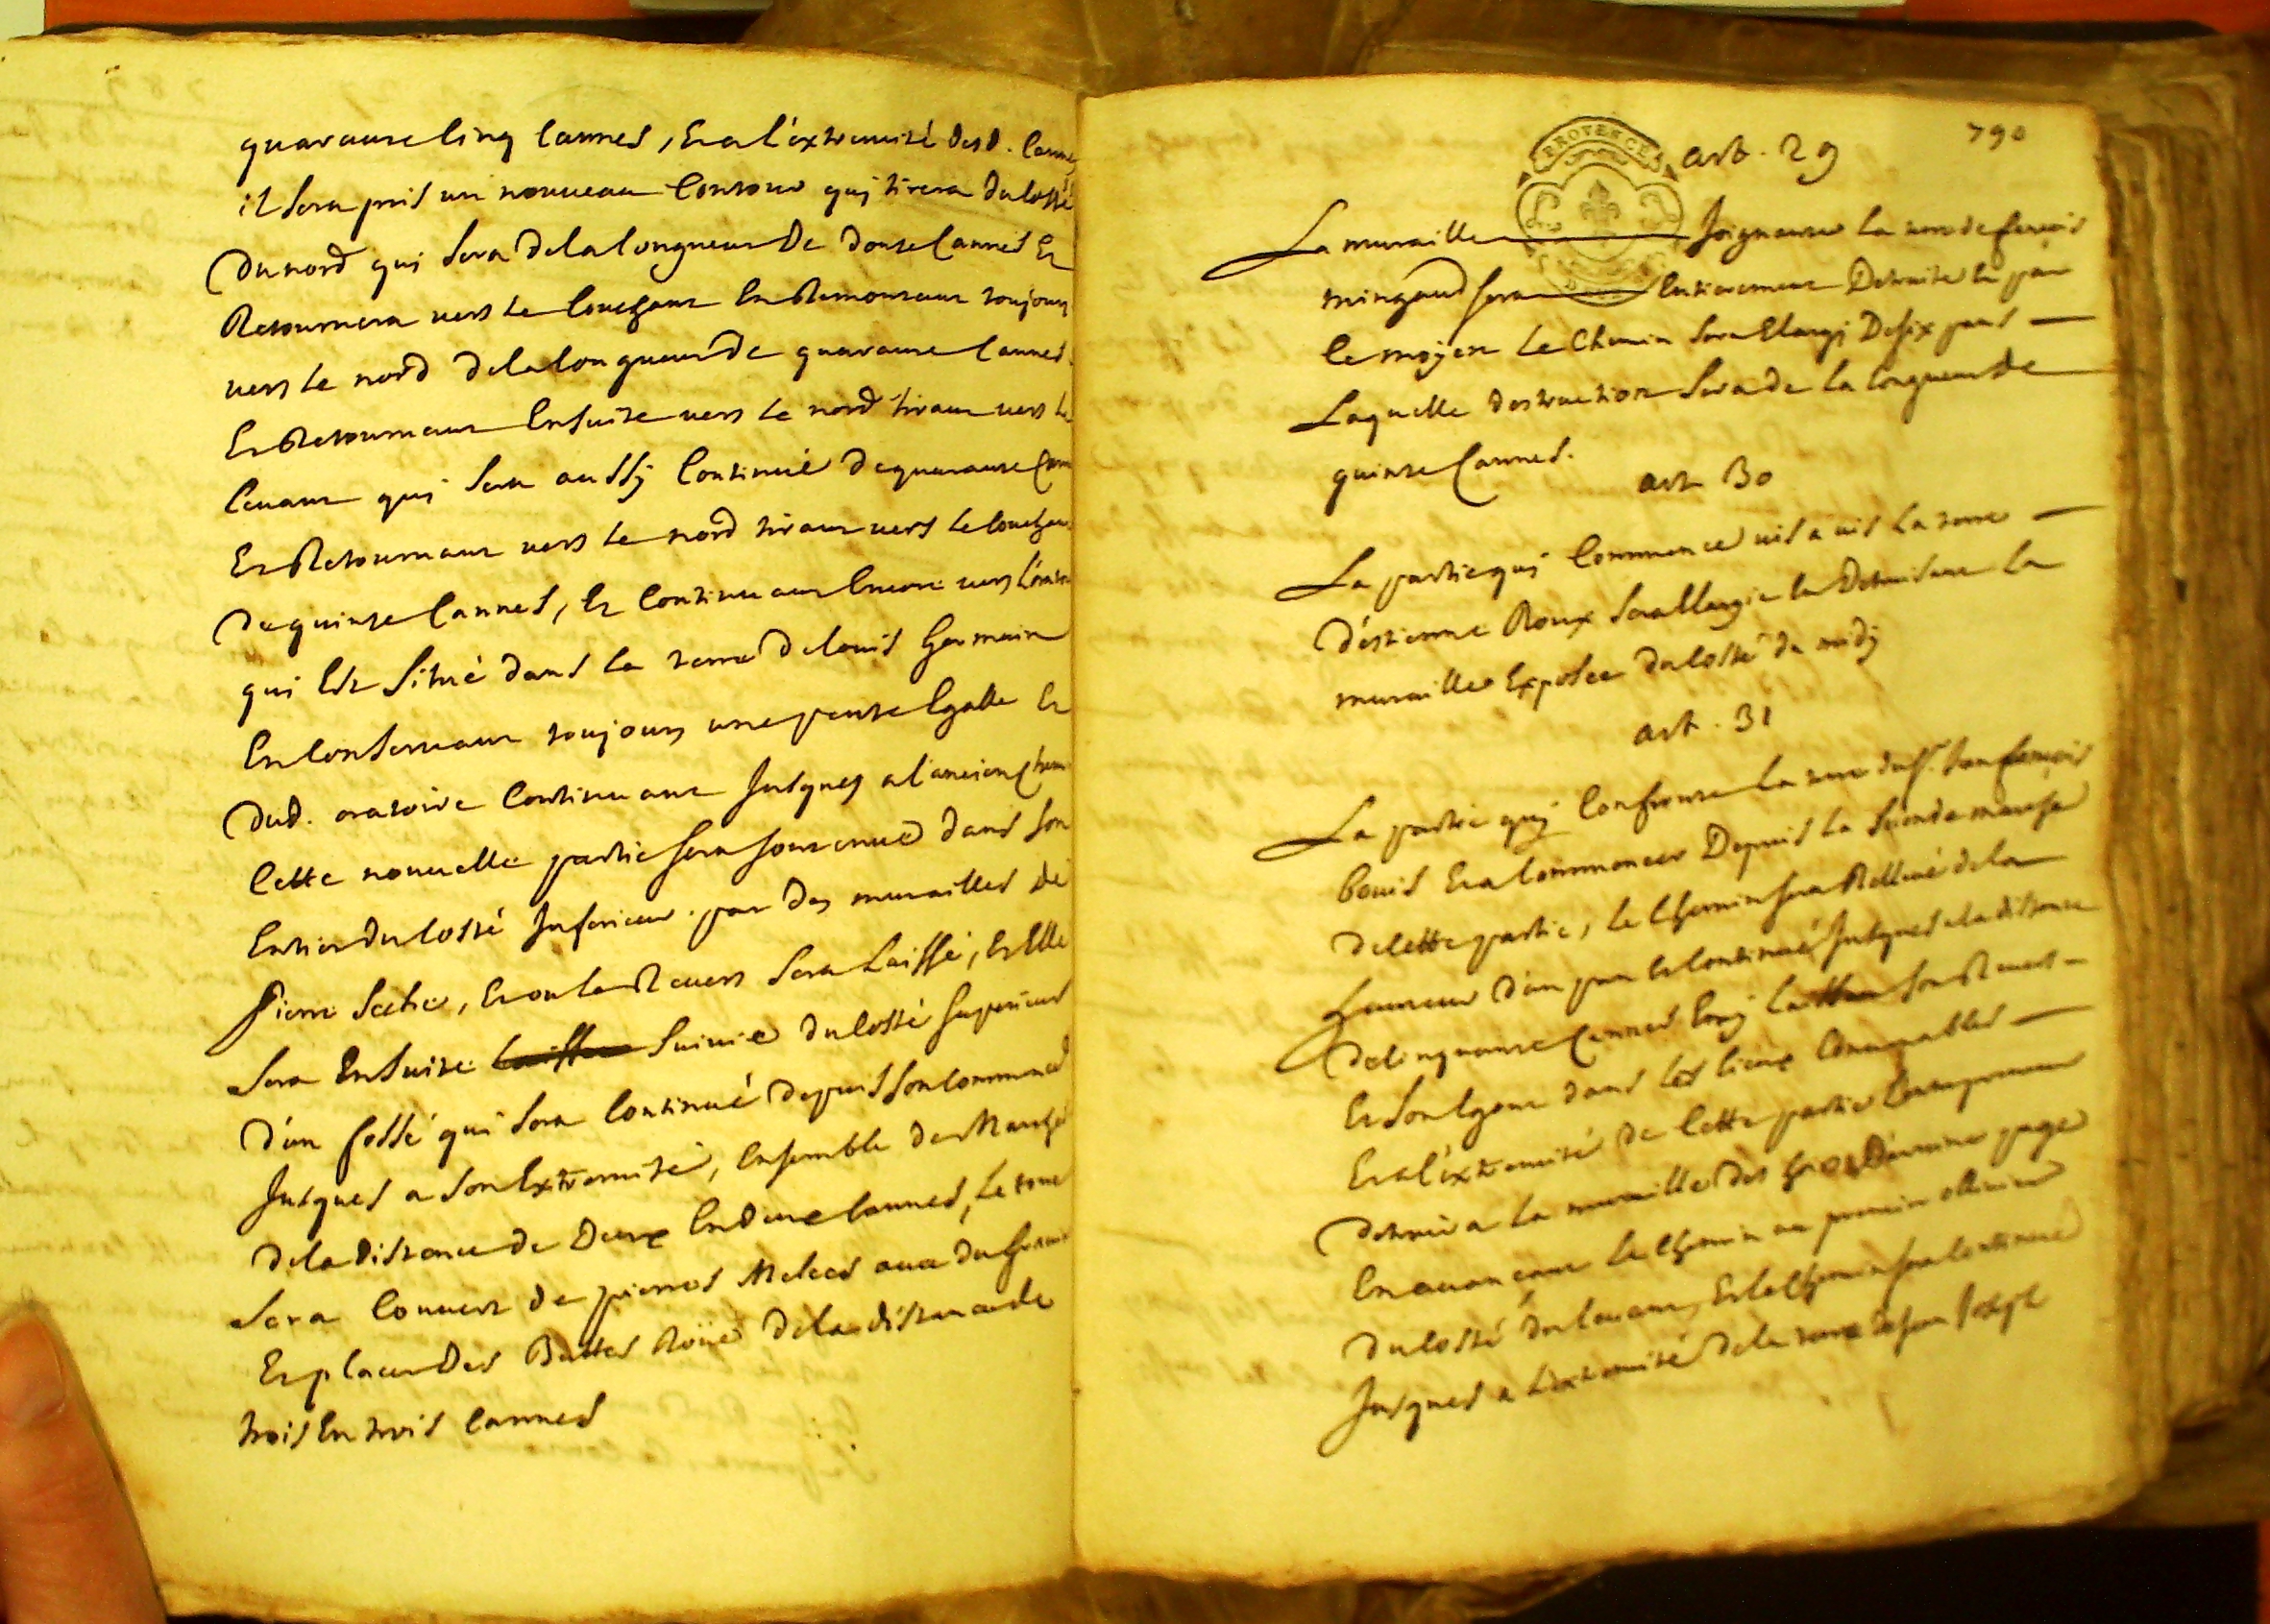 quarante cinq cannes, et a l'éxtremité desd. cannes
il sera pris un nouveau contour quj tirera du costé
du nord qui sera de la longueur de douse cannes et
Retournera vers le couchant en Remontant toujours
vers le nord de la longueur de quarante cannes.
Et Retournant ensuite vers le nord tirant vers le
levant quj sera aussj continué de quarante cann
Et Retournant vers le nord tirant vers le couchant
de quinse cannes, et continuant encore vers l'orato
qui est situé dans la terre de louis Germain
En conservant toujours une pente egalle et
dud. oratoire continuant Jusques a l'ancien chem
Cette nouvelle partie sera soutenue dans son
Entier du costé Inferieur par des murailles de
pierre seche, et ou le Revers sera laissé, et elle
sera ensuite suivie du costé superieur
d'un fossé qui sera continué depuis son commenc
Jusques a son extremité, ensemble des
de la distance de deux en deux cannes, le tout
sera couvert de pierres melées avec du
Et placer des Buttes Roüe de la distance de
trois en trois cannes
790
PROVENCE
art. 29
La muraille Joignant la terre de
mingaud sera entierement detruite et par
ce moyen le chemin sera Elargi de six pans
Laquelle destruction sera de la longueur de
quinse cannes.
art 30
La partie quj commence vis a vis la terre
d'estienne Roux sera Elargie en detruisant la
muraille Exposée du costé du midj
art. 31
La partie quj confronte la terre du sr. Jean françois
bouis et a commencer depuis la seconde
de cette partie, le chemin sera Rellevé de la
hauteur d'un pan et continué Jusques a la distance
de cinquante cannes son Revers
Et son egout dans les lieux convenables
Et a l'éxtremité de cette partie
detruira la muraille des
En avançant le chemin au premier ollivier
du costé du levant, et le chemin sera continué
Jusques a l'extremité de la terre de Jean Joseph